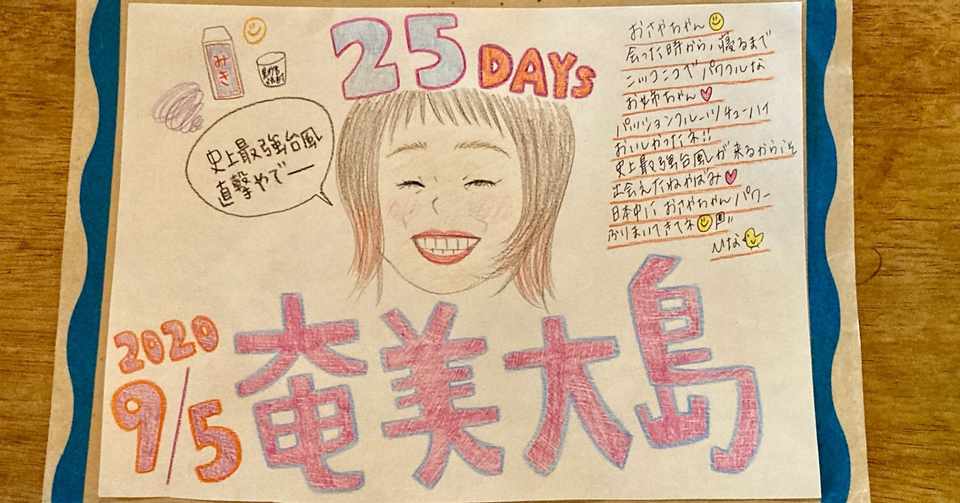 25 DAYS
みき
史上最強台風
直撃やでー
おさやちゃん
会った時から、寝るまで
ニッコニコでパワフルな
お姉ちゃん♡
パッションフルーツチューハイ
おいしかったネ!!
史上最強台風が来るからこそ
出会えたねやばみ♡
日本中に おさやちゃんパワー
ふりまいてきてネ
ひな
2020
9/5
奄美大島